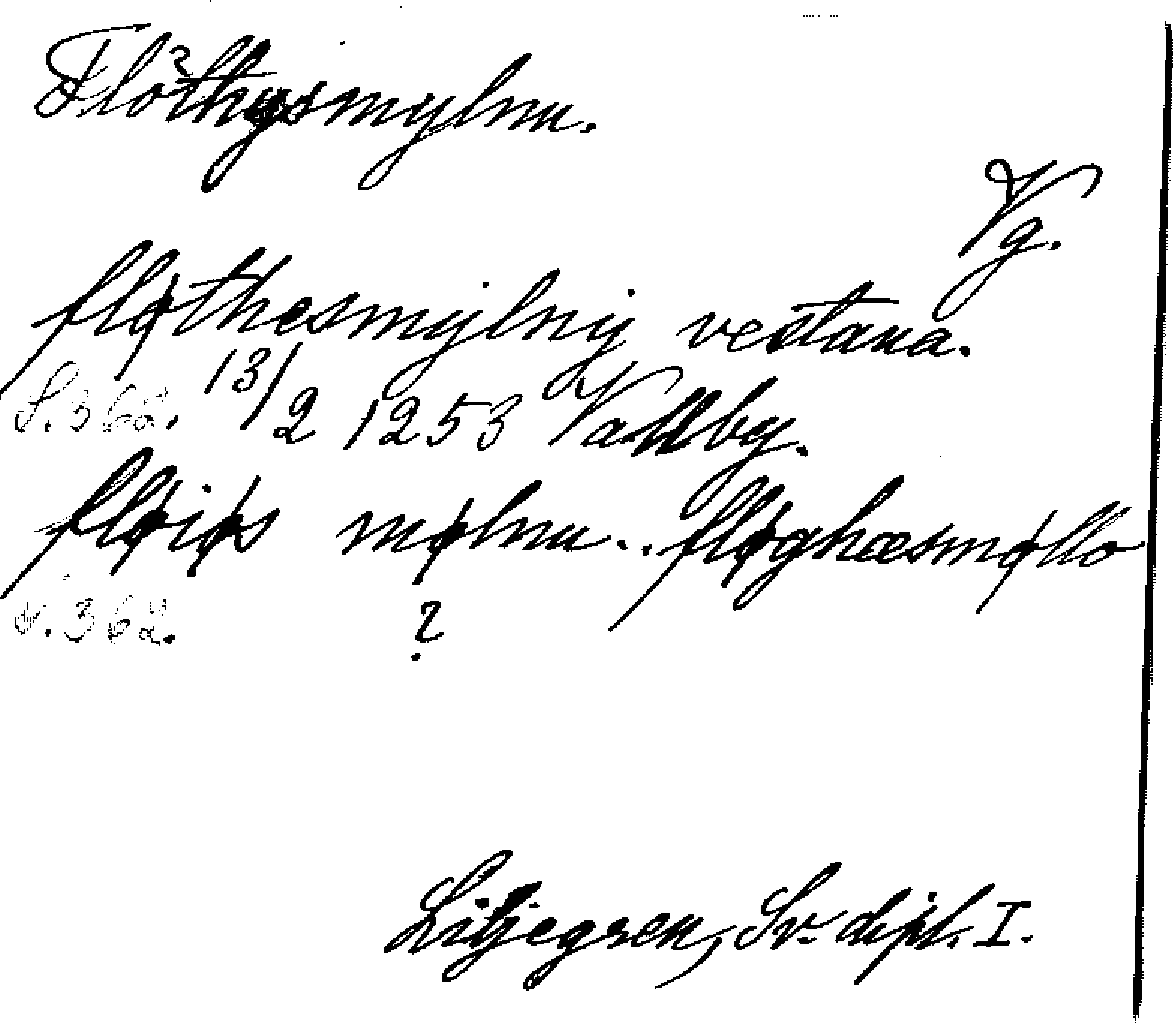 Flöthysmylnu.
Vg.
fløthesmylny vestana.
S. 362. 13/2 1253 Vallby.
fløiøs mølnu.. fløghæsmøllo
s. 362. ?
Liljegren, Sv. dipl. I.